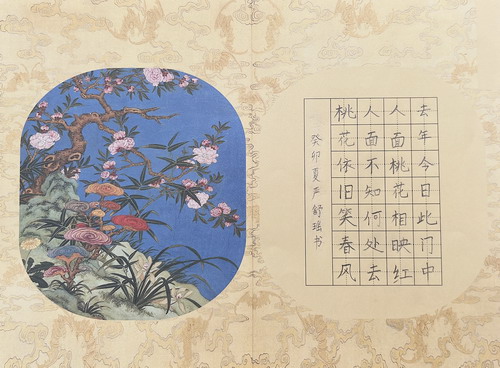 去年今日此门中
人面桃花相映红
人面不知何处去
桃花依旧笑春风
癸卯夏严舒瑶书